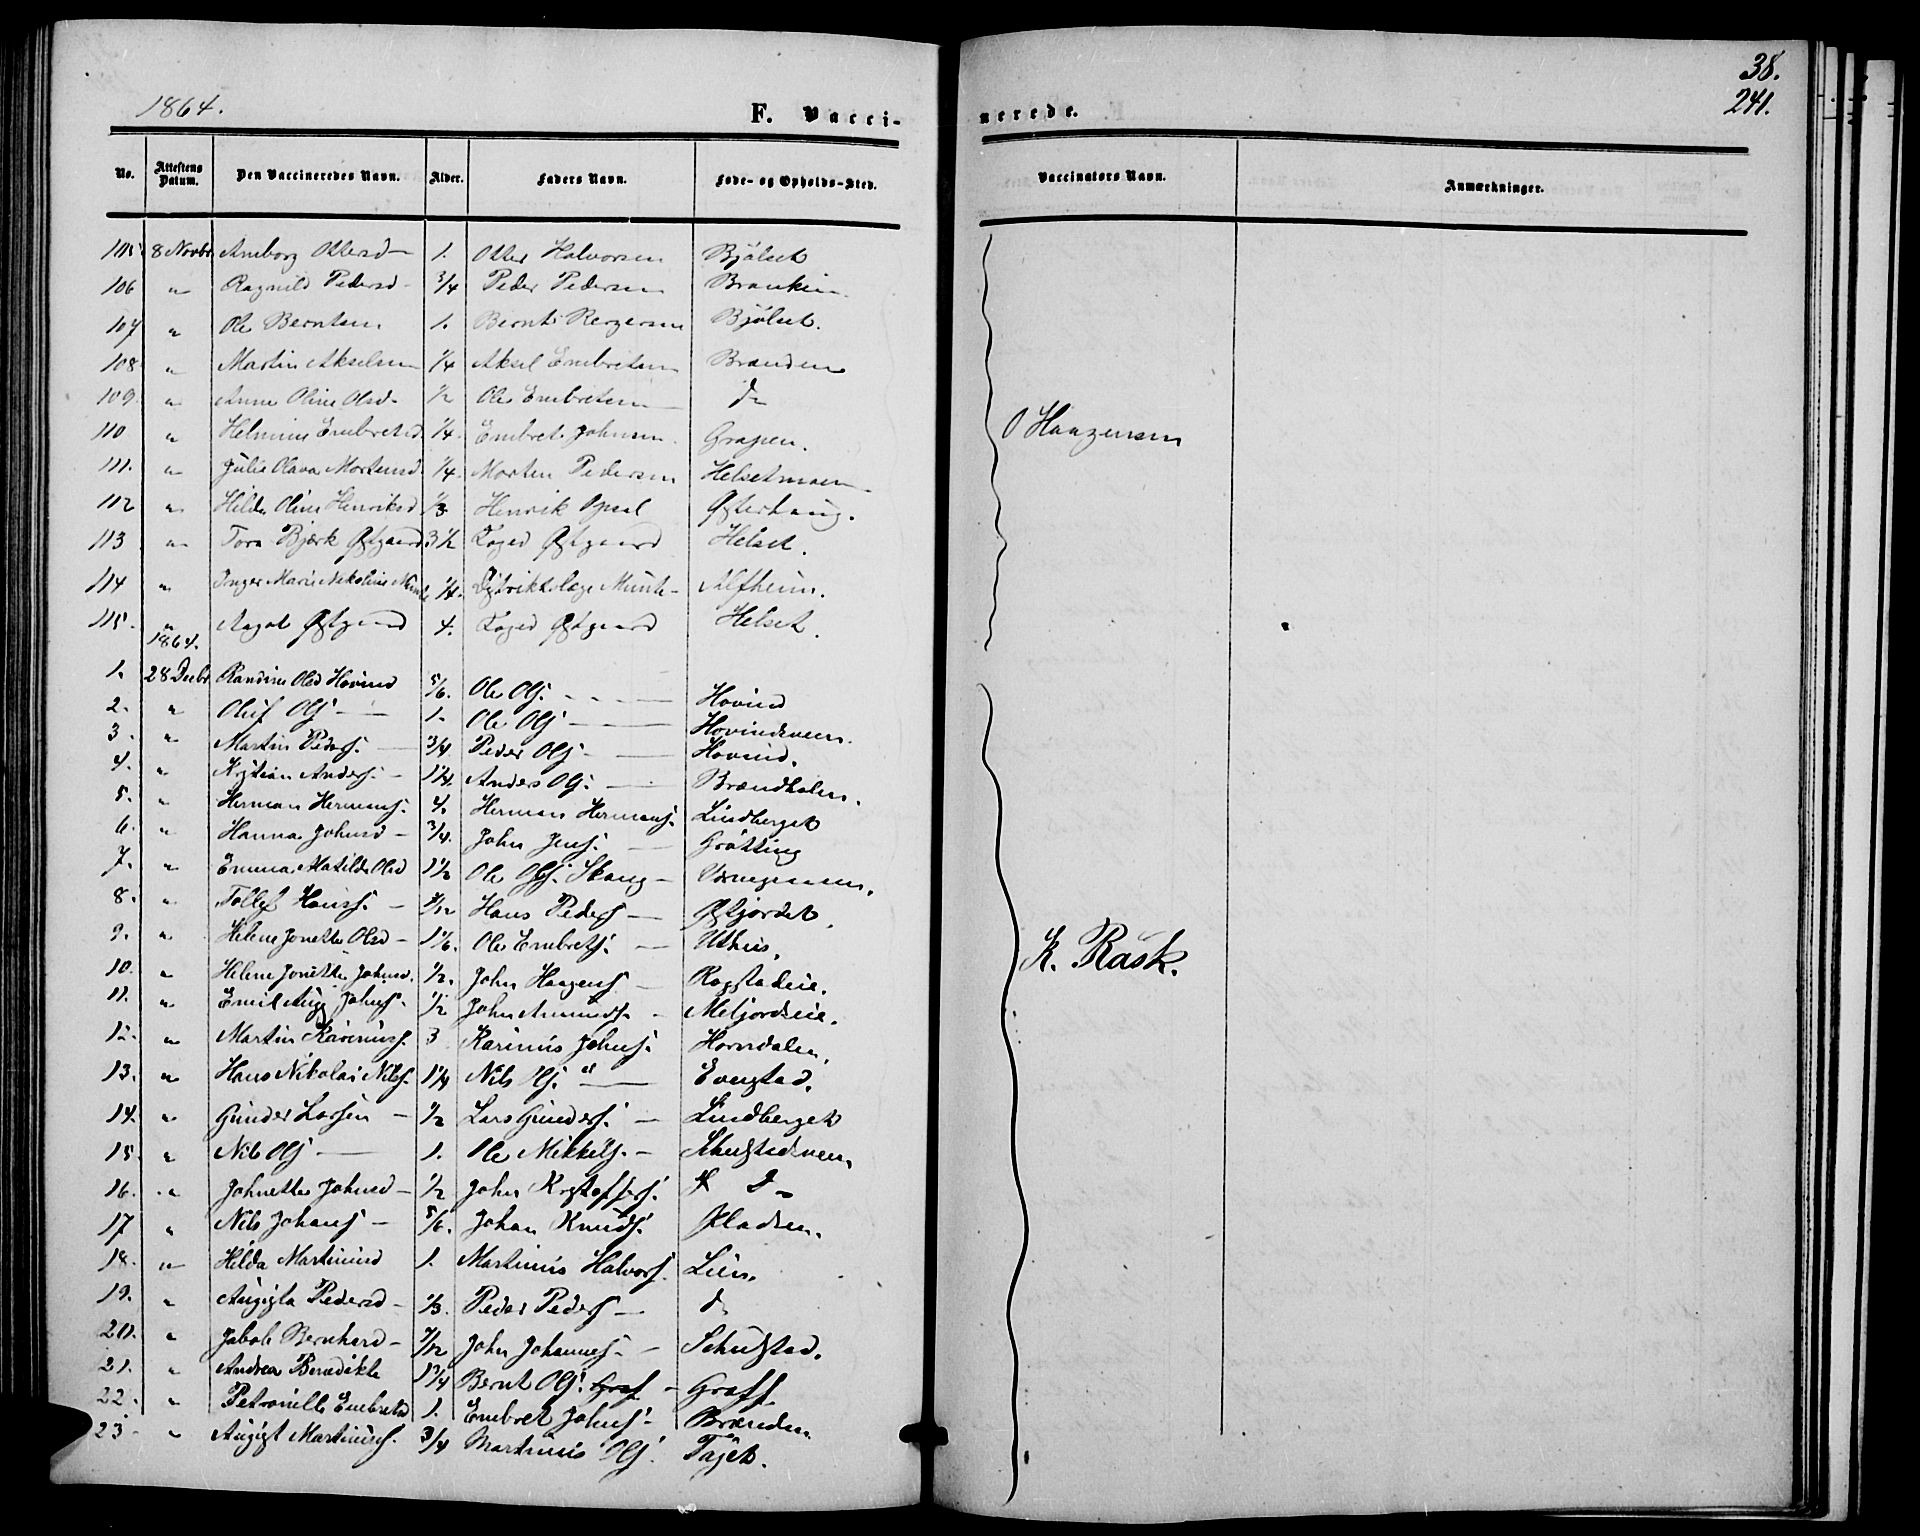 38.
241.
1864. F. Vacci- nerede.
No. Attestens Datum. Den Vaccineredes Navn. Alder. Faders Navn. Føde- og Opholds-Sted. Vaccinators Navn. Anmærkninger.
105 8 Novbr Anborg Ottersd 1. Otter Halvorsen Bjölset
106 " Ragnild Pedersd 3/4 Peder Pedersen
107 " Ole Berntsen 1. Bernt Bjölset.
108 " Martin Akselsen 1/4 Aksel Embretsen Branden
109 " Anne Oline Olsd 1/2 Ole Embretsen do
110 " Embretsd 1/4. Embret Johnsen. Grapen. O Haagensen
111. " Julie Olava Mortensd 1/4 Morten Pedersen Helsetmoen
112 " Hilda Oline Henriksd 1/3 Henrik Opsal Østerhaug.
113 " Tora Bjørk Østgaard 3 1/2 Foged Østgaard Helset.
114 " Inger Marie Nikoline Munte 1/4. Distriktslæge Munte Alfheim.
115. " Aagot Østgaard 4. Foged Østgaard Helset.
1864.
1. 28 Decbr Randine Olsd Hovind 5/6. Ole Ols. Hovind
2. " Oluf Ols 1. Ole Ols Hovindsveen.
3. " Martin Peders. 3/4 Peder Ols Hovind.
4. " Kristian Anders. 1 1/4. Anders Ols. Brændholen.
5. " Herman Hermans. 4. Herman Hermans. Lindberget
6. " Hanna Johnsd 3/4. John Jens. Grötting
7. " Emma Matilde Olsd 1 1/2 Ole Ols. Skaug
8. " Tollef Hans. Hans Peders Østjordet.
9. " Helene Jonette Olsd 1 1/6. Ole Embrets. Uthus.
10. " Helene Jonette Johnsd. 1/2. John Haagens Rogstadeie.
11. " Emil Aug Johns. 1/2 John Amunds. Meljordseie.
12. " Martin Karinius. 3 Karinius Johns. Horndalen.
13. " Hans Nikolai Nils. 1 1/4 Nils Ols. Evenstad.
14. " Gunder Larsen 1/2 Lars Gunders. Lindberget K. Rask.
15. " Nils Ols 1. Ole Mikkels. Schulstadsveen.
16. " Johnette Johnsd 1/2 John Kristoffers. do
17 " Nils Johans 5/6. Johan Knuds. Pladsen.
18. " Hilda Martinusd 1. Martinus Halvors. Lien.
19. " Augusta Pedersd 1/3. Peder Peders do
20. " Jakob Bernhard 7/12 John Johannes. Schulstad.
21. " Andrea Benedikte 1 3/4 Bernt Ols. Graf Graff
22. " Petronille Embretsd 1. Embret Johns. Brænden
23. " August Martinus. 3/4 Martinus Ols. Tajet.